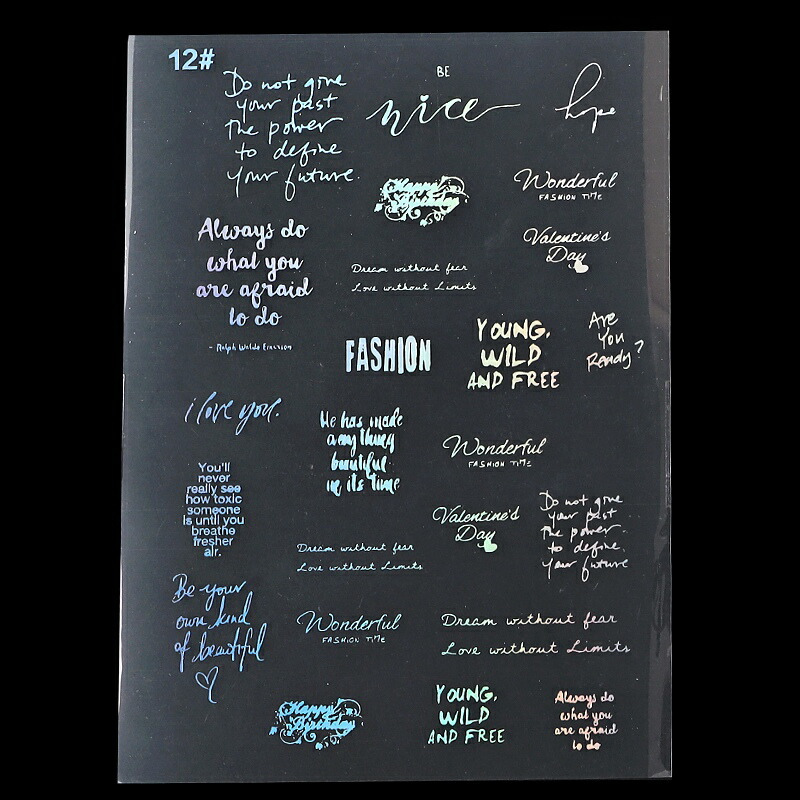 12#
Do not give
your past
the power
to define
your future.
BE
nice
hope
Happy
Birthday
Wonderful
FASHION TITLE
Always do
what you
are afraid
to do
- Ralph Waldo Emerson
Dream without fear
Love without Limits
Valentine's
Day
FASHION
YOUNG,
WILD
AND FREE
Are
You
Ready?
i love you.
He has made
everything
beautiful
in its time
Wonderful
FASHION TITLE
You'll
never
really see
how toxic
someone
is until you
breathe
fresher
air.
Valentine's
Day
Do not give
your past
the power
to define.
Your future
Dream without fear
Love without Limits
Be your
own kind
of beautiful
Wonderful
FASHION TITLE
Dream without fear
Love without Limits
Happy
Birthday
YOUNG,
WILD
AND FREE
Always do
what you
are afraid
to do